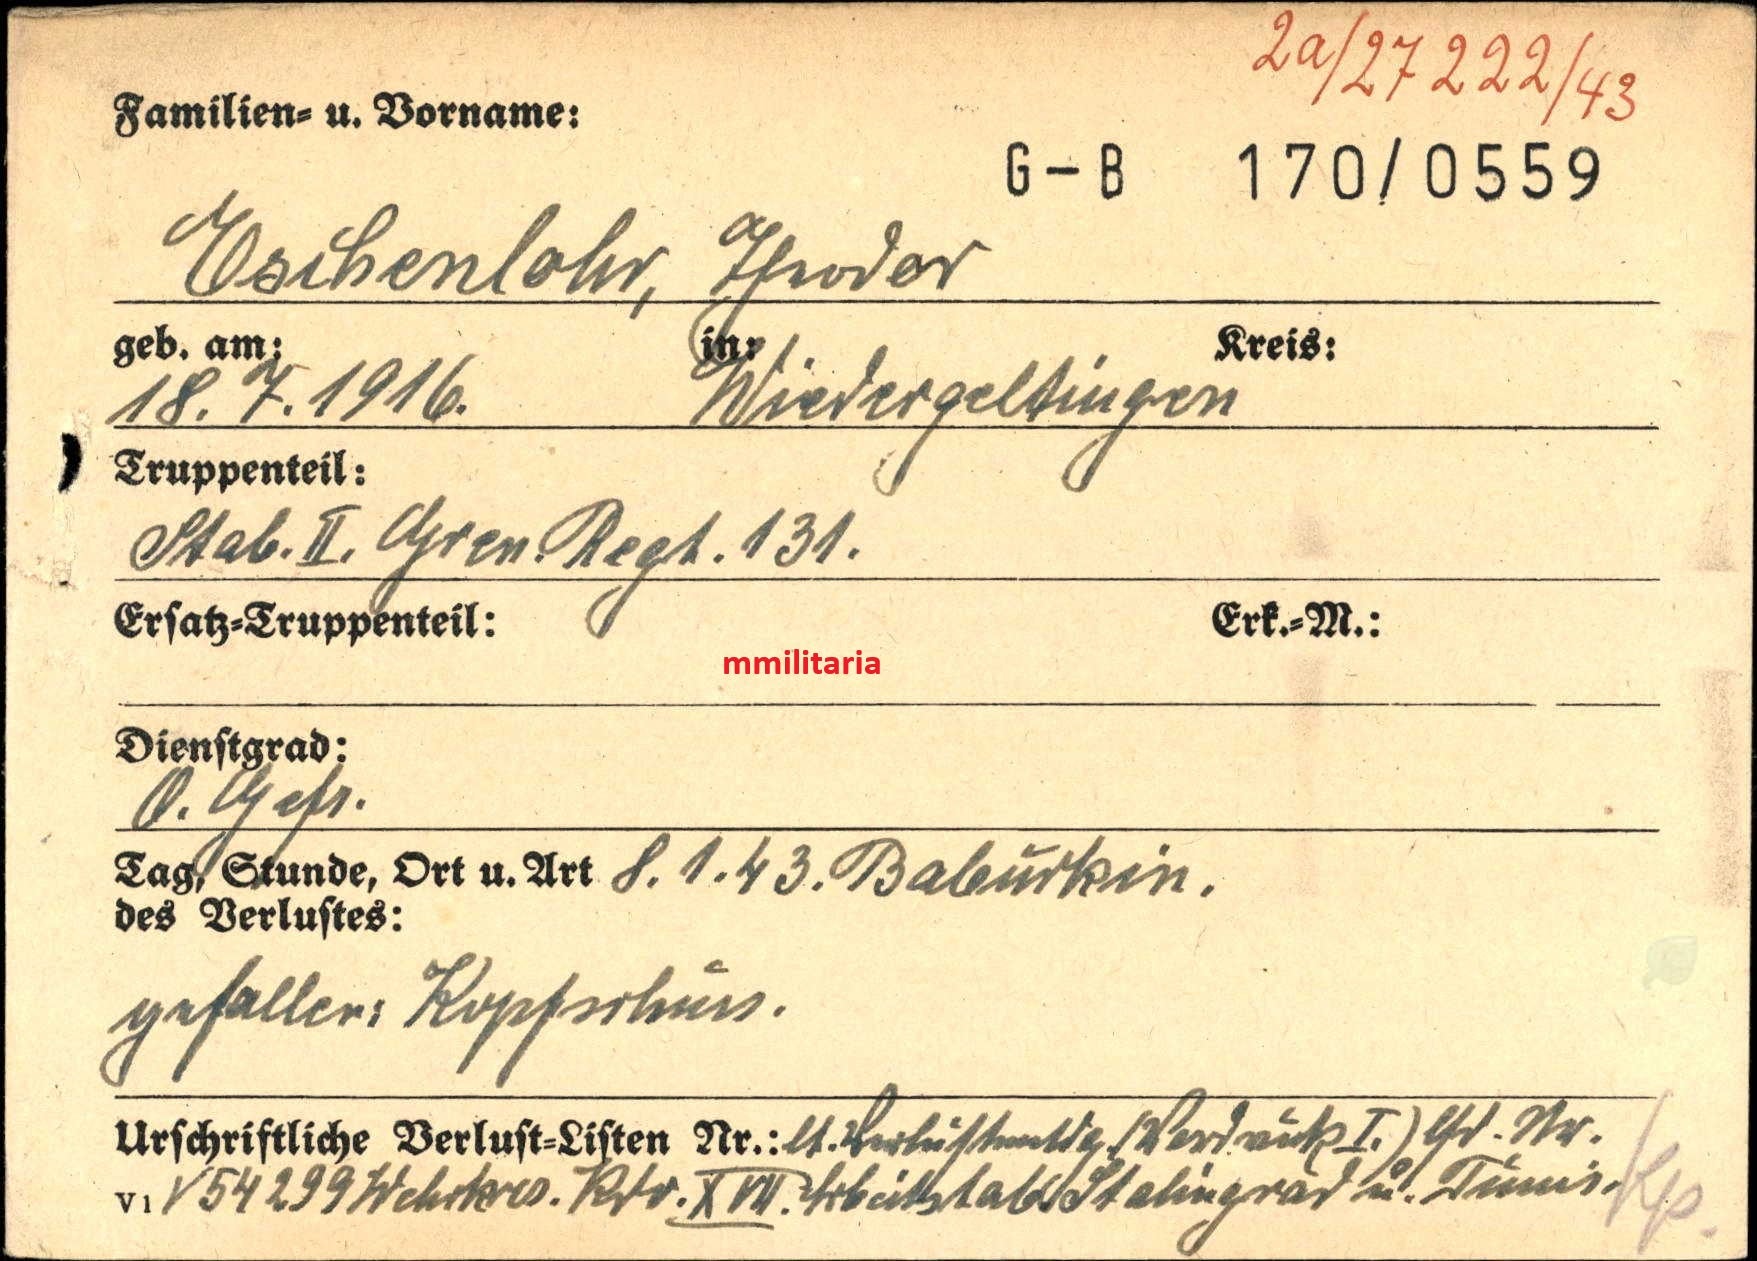 2a/27 222/43
Familien- u. Vorname:
G-B 170/0559
Eschenlohr, Theodor
geb. am: in: Kreis:
18. 7. 1916. Wiedergeltingen
Truppenteil:
Stab. II. Gren. Regt. 131.
Ersatz-Truppenteil: Erk.-M.:
mmilitaria
Dienstgrad:
O. Gefr.
Tag, Stunde, Ort u. Art 8. 1. 43. Baburkin.
des Verlustes:
gefallen: Kopfschuss.
Urschriftliche Verlust-Listen Nr.: lt. Verlustmeldg. (Vordruck I.) lfd. Nr.
V1 54299 Wehrkrs. Kdo. XVII. Arbeitsstab Stalingrad u. Tunis.